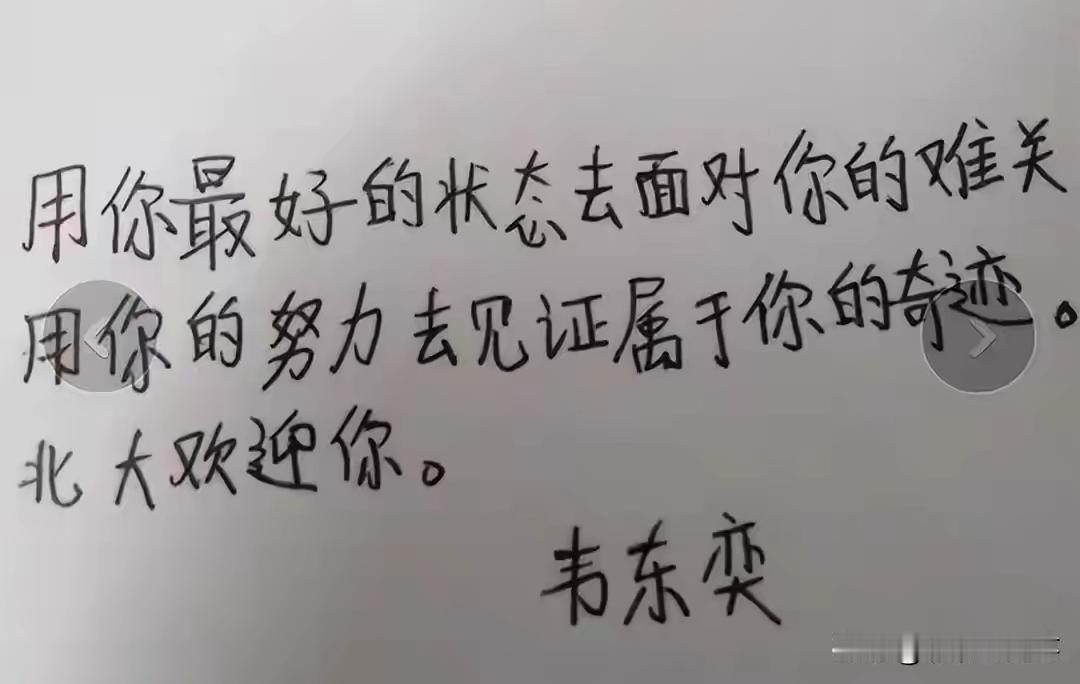 用你最好的状态去面对你的难关
用你的努力去见证属于你的奇迹。
北大欢迎你。
韦东奕